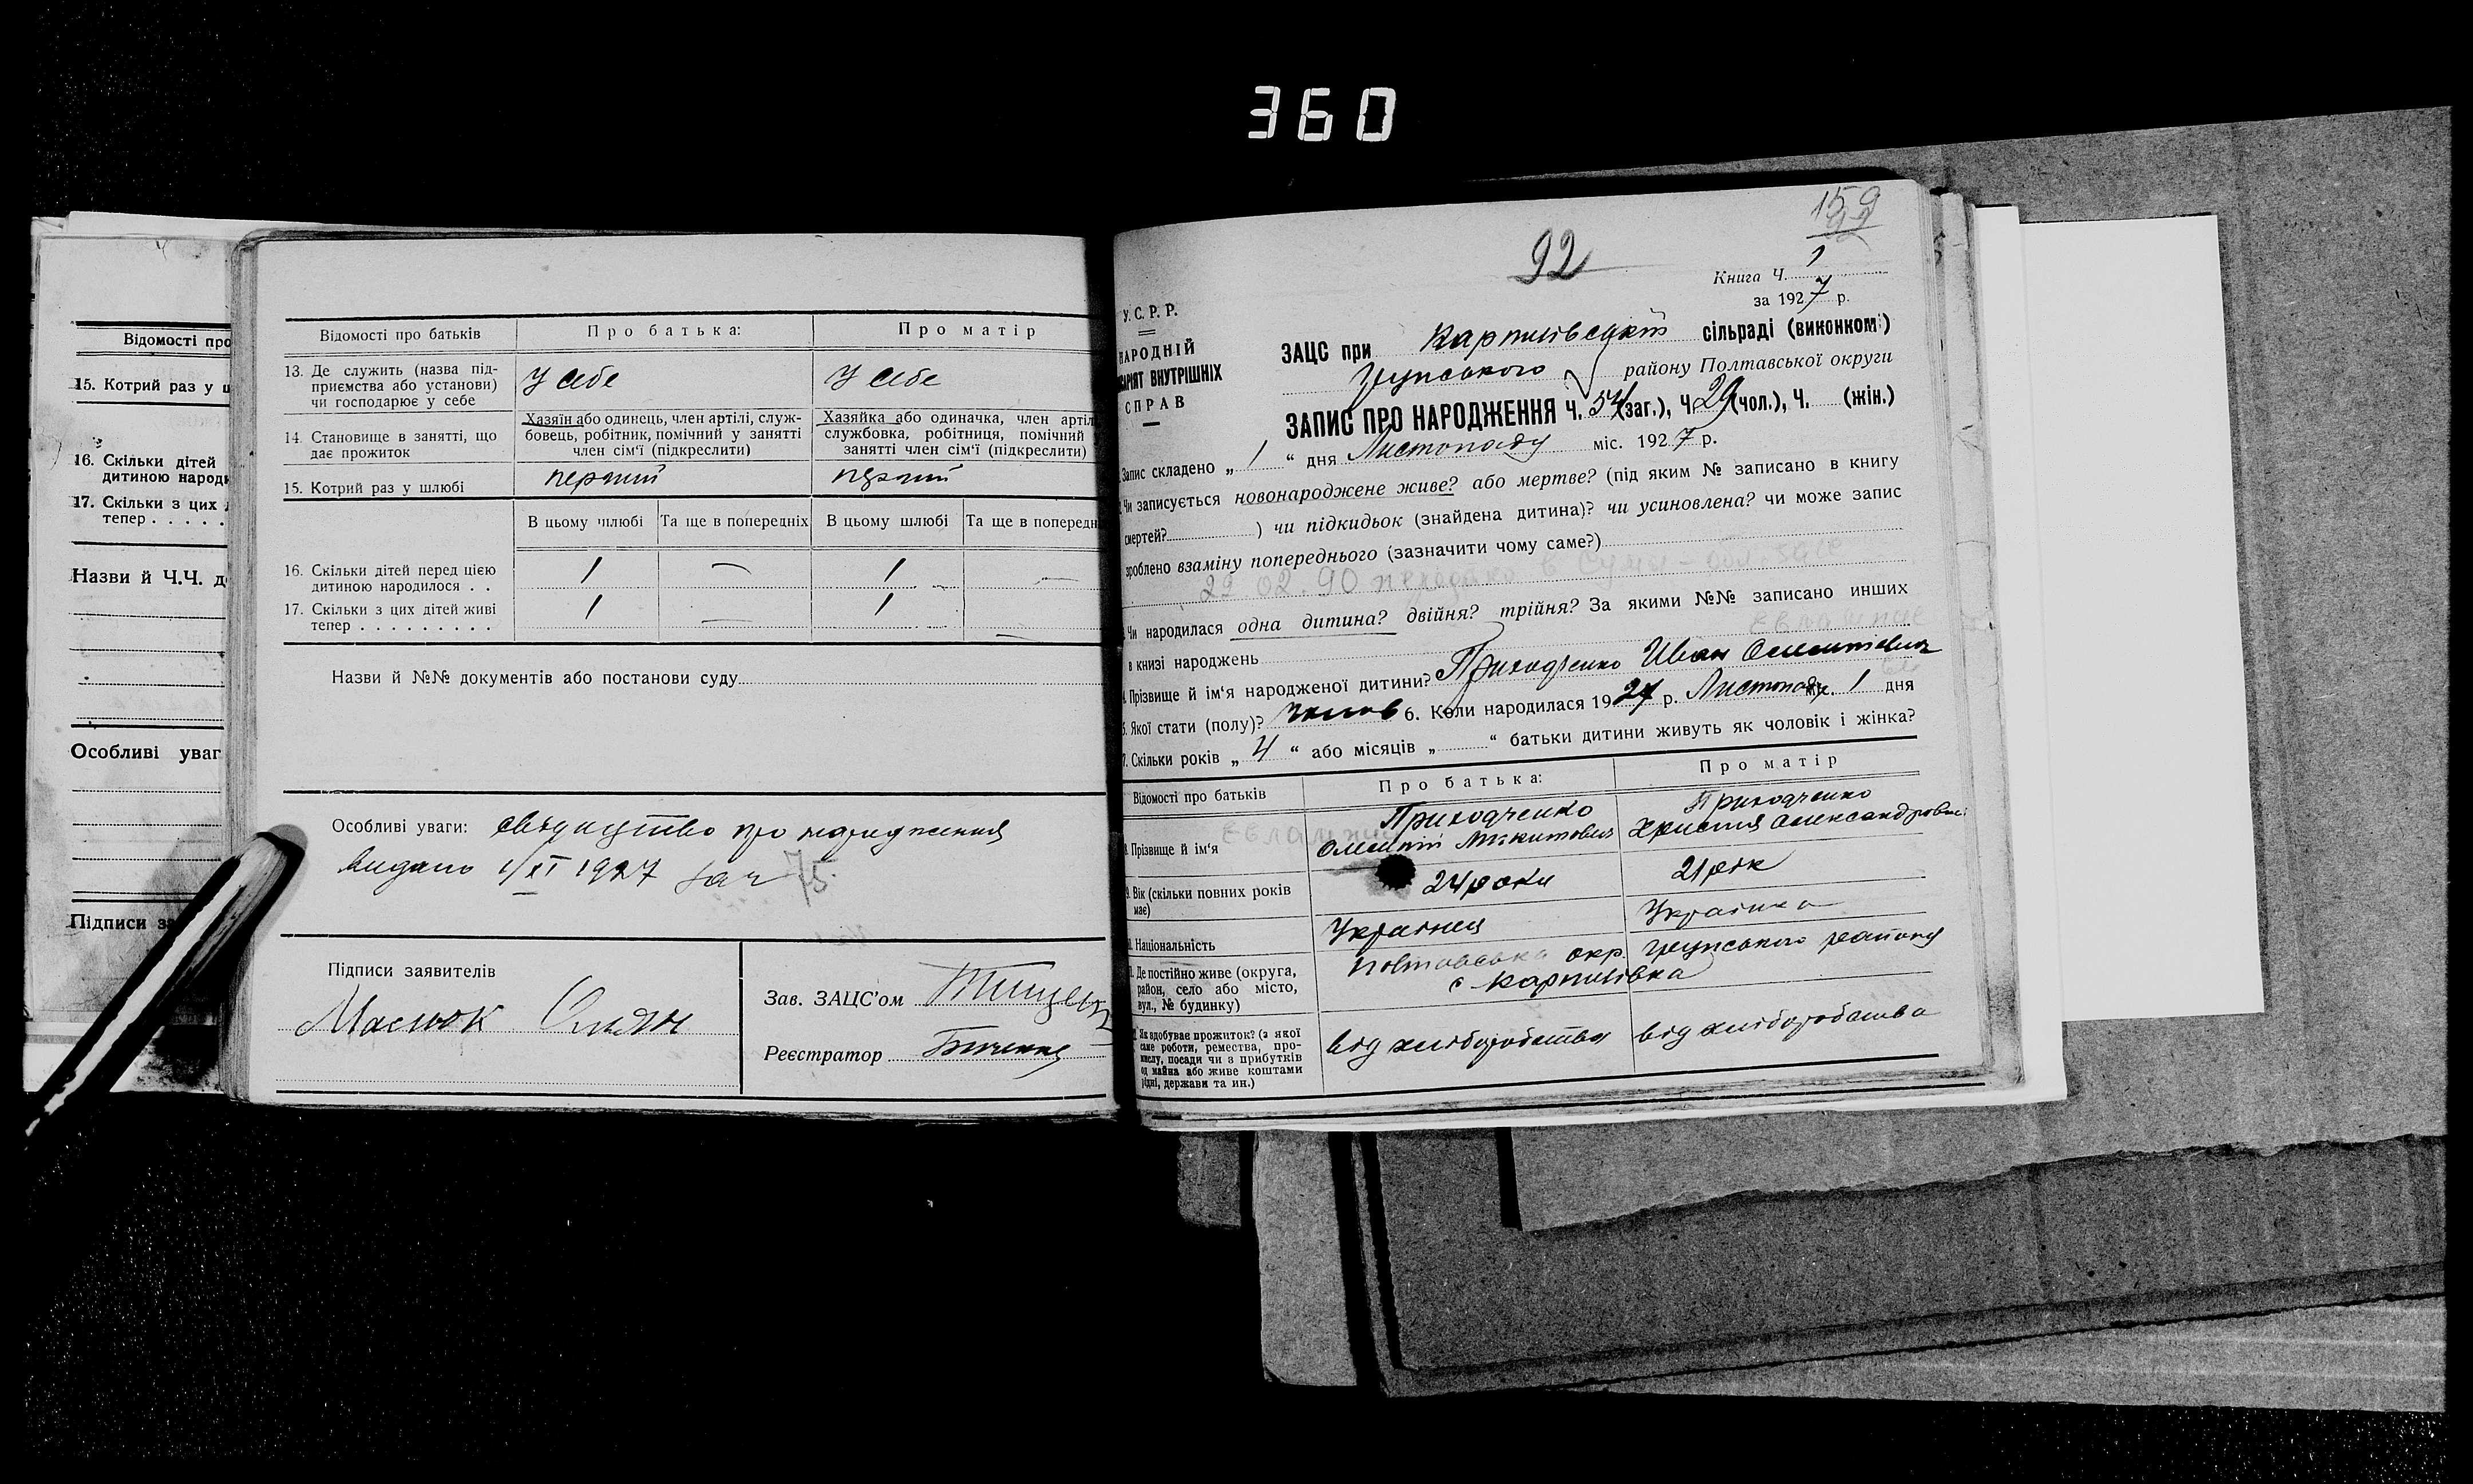 360
Відомості про
15. Котрий раз у ш
16. Скільки дітей
дитиною народи
17. Скільки з цих
тепер . . . . .
Назви й Ч.Ч. д
Особливі уваг
Підписи за
Відомості про батьків
Про батька:
Про матір
13. Де служить (назва під-
приємства або установи)
чи господарює у себе
У себе
У себе
14. Становище в занятті, що
дає прожиток
Хазяїн або одинець, член артілі, служ-
бовець, робітник, помічний у занятті
член сім'ї (підкреслити)
Хазяйка або одиначка, член артіл
службовка, робітниця, помічний
занятті член сім'ї (підкреслити)
15. Котрий раз у шлюбі
перший
перший
В цьому шлюбі
Та ще в попередніх
В цьому шлюбі
Та ще в поперед
16. Скільки дітей перед цією
дитиною народилося . .
1 — 1 —
17. Скільки з цих дітей живі
тепер . . . . . . . . .
1 — 1 —
Назви й №№ документів або постанови суду
Особливі уваги: свідицтво про народження
видано 1/XI 1927 за ч 75
Підписи заявителів
Маслюк
Зав. ЗАЦС'ом
Реєстратор
159
92
92
Книга Ч. 1
за 1927 р.
У.С.Р.Р.
НАРОДНІЙ
АРІЯТ ВНУТРІШНІХ
СПРАВ
ЗАЦС при Карпилівській сільраді (виконком)
району Полтавської округи
ЗАПИС ПРО НАРОДЖЕННЯ Ч. 54 (заг.), Ч 29 (чол.), Ч. (жін.)
Запис складено „ 1 “ дня Листопаду міс. 1927 р.
Чи записується новонароджене живе? або мертве? (під яким № записано в книгу
смертей? ) чи підкидьок (знайдена дитина)? чи усиновлена? чи може запис
зроблено взаміну попереднього (зазначити чому саме?)
22.02.90
Чи народилася одна дитина? двійня? трійня? За якими №№ записано инших
в книзі народжень
Прізвище й ім'я народженої дитини? Приходченко Иван
5. Якої стати (полу)? чолов 6. Коли народилася 1927 р. Листопаду 1 дня
7. Скільки років „ 4 “ або місяців „ “ батьки дитини живуть як чоловік і жінка?
Відомості про батьків
Про батька:
Про матір
8. Прізвище й ім'я
Приходченко
Микитович
Приходченко
Христя Олександровна
9. Вік (скільки повних років
має)
24 роки
21 рік
Національність
Українець
Українка
Де постійно живе (округа,
район, село або місто,
вул., № будинку)
Полтавська окр. району
с Карпилівка
Як здобуває прожиток? (з якої
саме роботи, ремества, про-
мислу, посади чи з прибутків
од майна або живе коштами
рідні, держави та ин.)
від хліборобства
від хліборобства